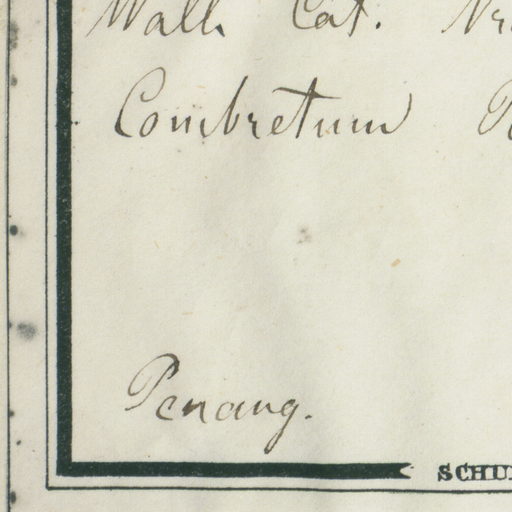 Wall. Cat.
Combretum
Penang.
SCHU